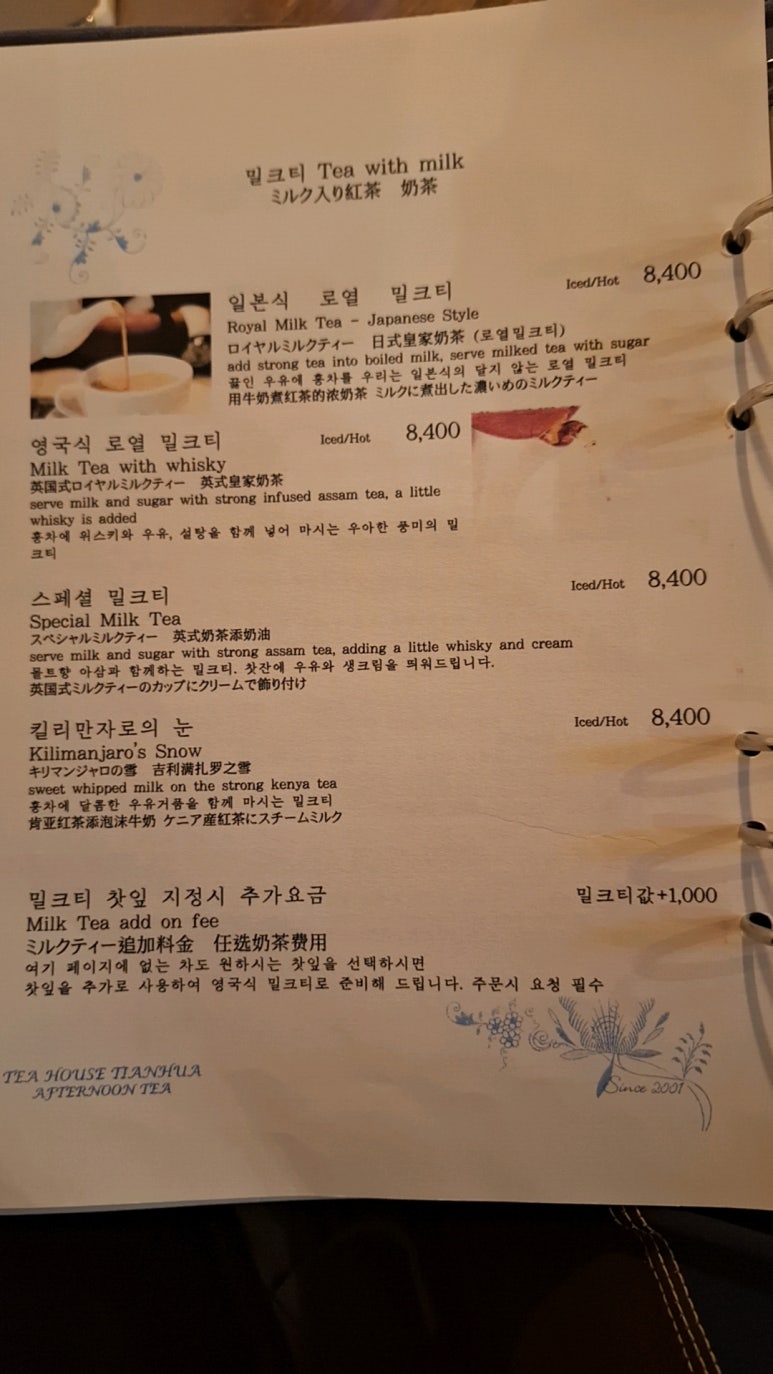 밀크티 Tea with milk
ミルク入り紅茶 奶茶
일본식 로열 밀크티 Iced/Hot 8,400
Royal Milk Tea - Japanese Style
ロイヤルミルクティー 日式皇家奶茶 (로열밀크티)
add strong tea into boiled milk, serve milked tea with sugar
끓인 우유에 홍차를 우리는 일본식의 달지 않는 로열 밀크티
用牛奶煮紅茶的浓奶茶 ミルクに煮出した濃いめのミルクティー
영국식 로열 밀크티 Iced/Hot 8,400
Milk Tea with whisky
英国式ロイヤルミルクティー 英式皇家奶茶
serve milk and sugar with strong infused assam tea, a little
whisky is added
홍차에 위스키와 우유, 설탕을 함께 넣어 마시는 우아한 풍미의 밀
크티
스페셜 밀크티 Iced/Hot 8,400
Special Milk Tea
スペシャルミルクティー 英式奶茶添奶油
serve milk and sugar with strong assam tea, adding a little whisky and cream
몰트향 아삼과 함께하는 밀크티. 찻잔에 우유와 생크림을 띄워드립니다.
英国式ミルクティーのカップにクリームで飾り付け
킬리만자로의 눈 Iced/Hot 8,400
Kilimanjaro's Snow
キリマンジャロの雪 吉利满扎罗之雪
sweet whipped milk on the strong kenya tea
홍차에 달콤한 우유거품을 함께 마시는 밀크티
肯亚红茶添泡沫牛奶 ケニア産紅茶にスチームミルク
밀크티 찻잎 지정시 추가요금 밀크티값+1,000
Milk Tea add on fee
ミルクティー追加料金 任选奶茶费用
여기 페이지에 없는 차도 원하시는 찻잎을 선택하시면
찻잎을 추가로 사용하여 영국식 밀크티로 준비해 드립니다. 주문시 요청 필수
TEA HOUSE TIANHUA
AFTERNOON TEA
Since 2001